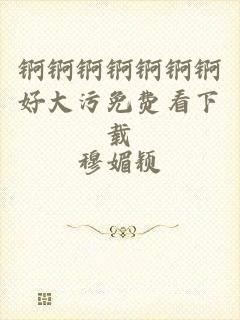 锕锕锕锕锕锕锕
好大污免费看下
载
穆媚颖